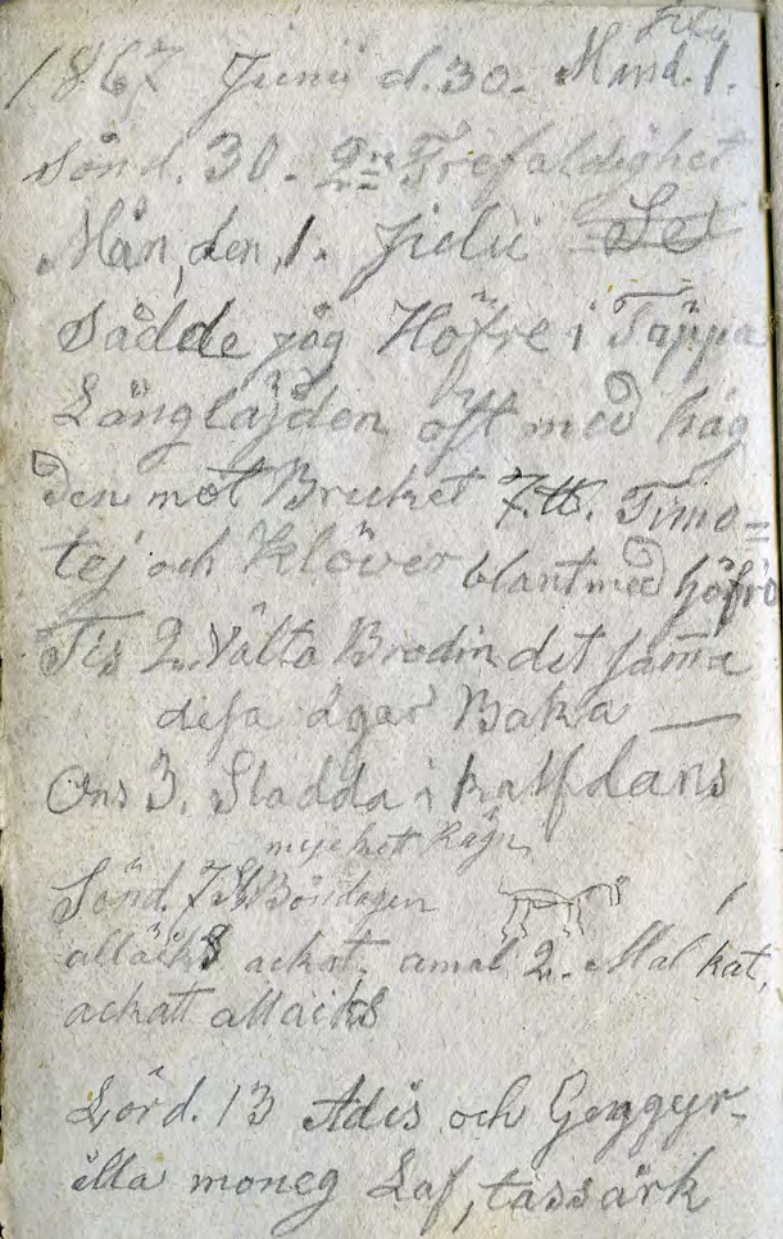 Julii
1867 Junii d. 30. Månd. 1.
Sönd. 30. 2re Trefaldighet
Mån, den, 1. Julii Se
Sådde jag Höfre i Täppa
Långläjden öft med häg
den mot Bruket 7. tt. Timo=
tej och Klöver blant med höfre
Tis 2. Välta Brodin det sama
desa dgar Baka —
Ons 3. Sladda i Kalfdans
mycket Rägn
Sönd. 7 Böndagen
alläiks ackat. amal 2. Mal kat,
ackatt allaiks
Lörd. 13 Adis och Geggyr-
illa moneg Laf, tassark